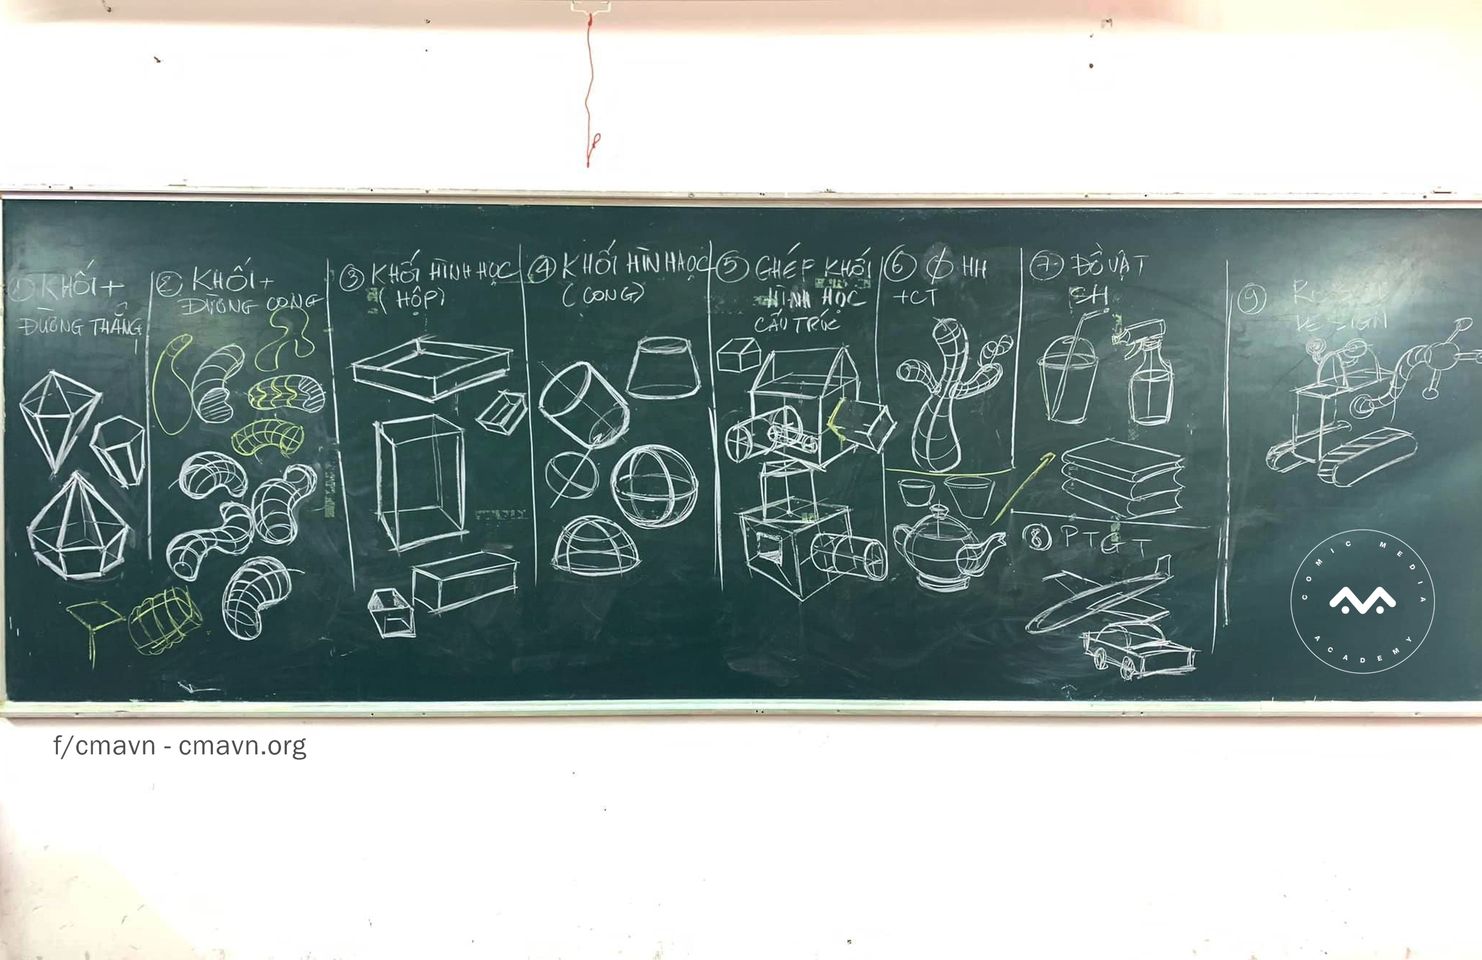 ① KHỐI +
ĐƯỜNG THẲNG
② KHỐI +
ĐƯỜNG CONG
③ KHỐI HÌNH HỌC
(HỘP)
④ KHỐI HÌNH HỌC
(CONG)
⑤ GHÉP KHỐI
HÌNH HỌC
CẤU TRÚC
⑥ HH
+CT
⑦ ĐỒ VẬT
SH
⑧ PTGT
⑨
DESIGN
COMIC MEDIA ACADEMY
f/cmavn - cmavn.org